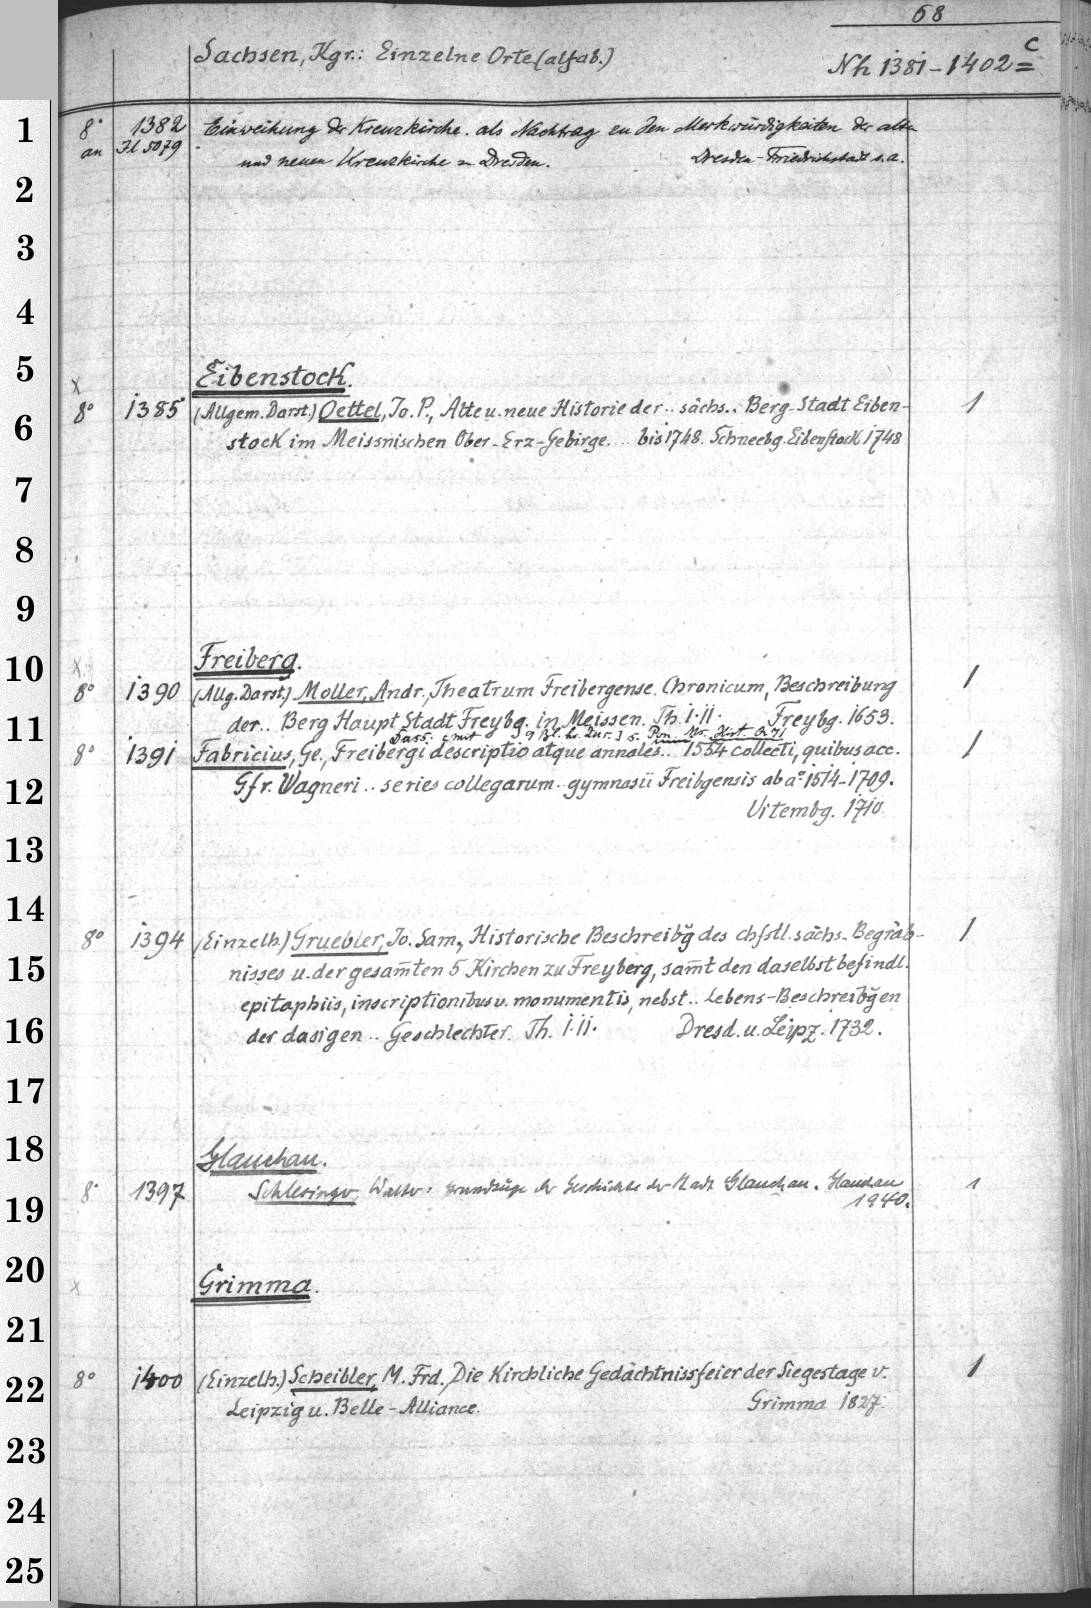 68
Sachsen, Kgr.: Einzelne Orte (alfab.)
Nh 1381-1402 c
1 8° 1382 Einweihung der Kreuzkirche. als Nachtrag zu den Merkwürdigkeiten der alten
an Fl 5079 und neuen Kreuzkirche zu Dresden. Dresden-Friedrichstadt s.a.
2
3
4
5 x Eibenstock.
6 8° 1385 (Allgem. Darst.) Oettel, Jo. P., Alte u. neue Historie der .. sächs.. Berg-Stadt Eiben- 1
stock im Meissnischen Ober-Erz-Gebirge.... bis 1748. Schneebg. Eibenstock 1748
7
8
9
10 x Freiberg.
8° 1390 (Allg. Darst.) Moller, Andr., Theatrum Freibergense Chronicum, Beschreibung 1
11 der.. Berg Haupt Stadt Freybg. in Meissen. Th. I.II. Freybg. 1653.
8° 1391 Fabricius, Ge., Freibergi descriptio atque annales... 1554 collecti, quibus acc. 1
12 Gfr. Wagneri .. series collegarum .. gymnasii Freibgensis ab a° 1514-1709.
Vitembg. 1710
13
14
8° 1394 (Einzelh.) Gruebler, Jo. Sam., Historische Beschreibg̃ des chfstl. sächs. Begräb- 1
15 nisses u. der gesam̅ten 5 Kirchen zu Freyberg, sam̅t den daselbst befindl.
epitaphiis, inscriptionibus u. monumentis, nebst.. Lebens-Beschreibg̃en
16 der dasigen .. Geschlechter. Th. I.II. Dresd. u. Leipz. 1732.
17
18 Glauchau.
8° 1397 Schlesinger, Walter: Grundzüge der Geschichte der Stadt Glauchau. Glauchau 1
19 1940.
20 x Grimma.
21
22 8° 1400 (Einzelh.) Scheibler, M. Frd., Die Kirchliche Gedächtnissfeier der Siegestage v. 1
Leipzig u. Belle-Alliance. Grimma 1827.
23
24
25